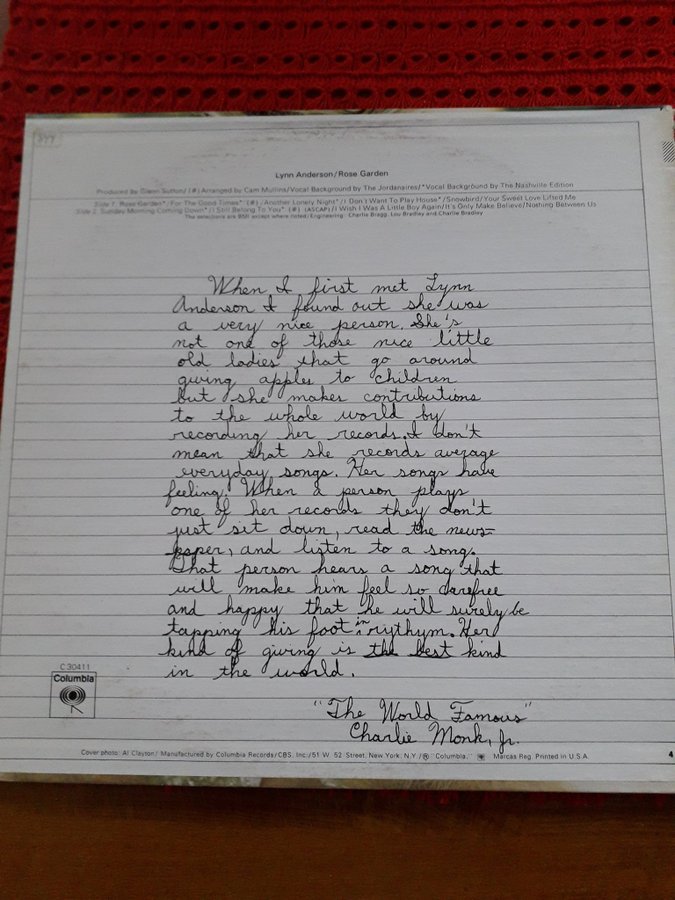 Lynn Anderson/Rose Garden
Produced by Glenn Sutton/(#) Arranged by Cam Mullins/Vocal Background by The Jordanaires/*Vocal Background by The Nashville Edition
Side 1: Rose Garden*/For The Good Times*(#)/Another Lonely Night*/I Don't Want To Play House*/Snowbird/Your Sweet Love Lifted Me
Side 2: Sunday Morning Coming Down*/I Still Belong To You* (#) (ASCAP)/I Wish I Was A Little Boy Again/It's Only Make Believe/Nothing Between Us
The selections are BMI except where noted/Engineering: Charlie Bragg, Lou Bradley and Charlie Bradley
When I first met Lynn
Anderson I found out she was
a very nice person. She's
not one of those nice little
old ladies that go around
giving apples to children
but she makes contributions
to the whole world by
recording her records. I don't
mean that she records average
everyday songs. Her songs have
feeling. When a person plays
one of her records they don't
just sit down, read the news-
paper, and listen to a song.
That person hears a song that
will make him feel so carefree
and happy that he will surely be
tapping his foot in rhythym. Her
kind of giving is the best kind
in the world.
"The World Famous"
Charlie Monk, Jr.
C 30411
Columbia
Cover photo: Al Clayton/Manufactured by Columbia Records/CBS, Inc./51 W. 52 Street, New York, N.Y./® "Columbia," Marcas Reg. Printed in U.S.A.
4